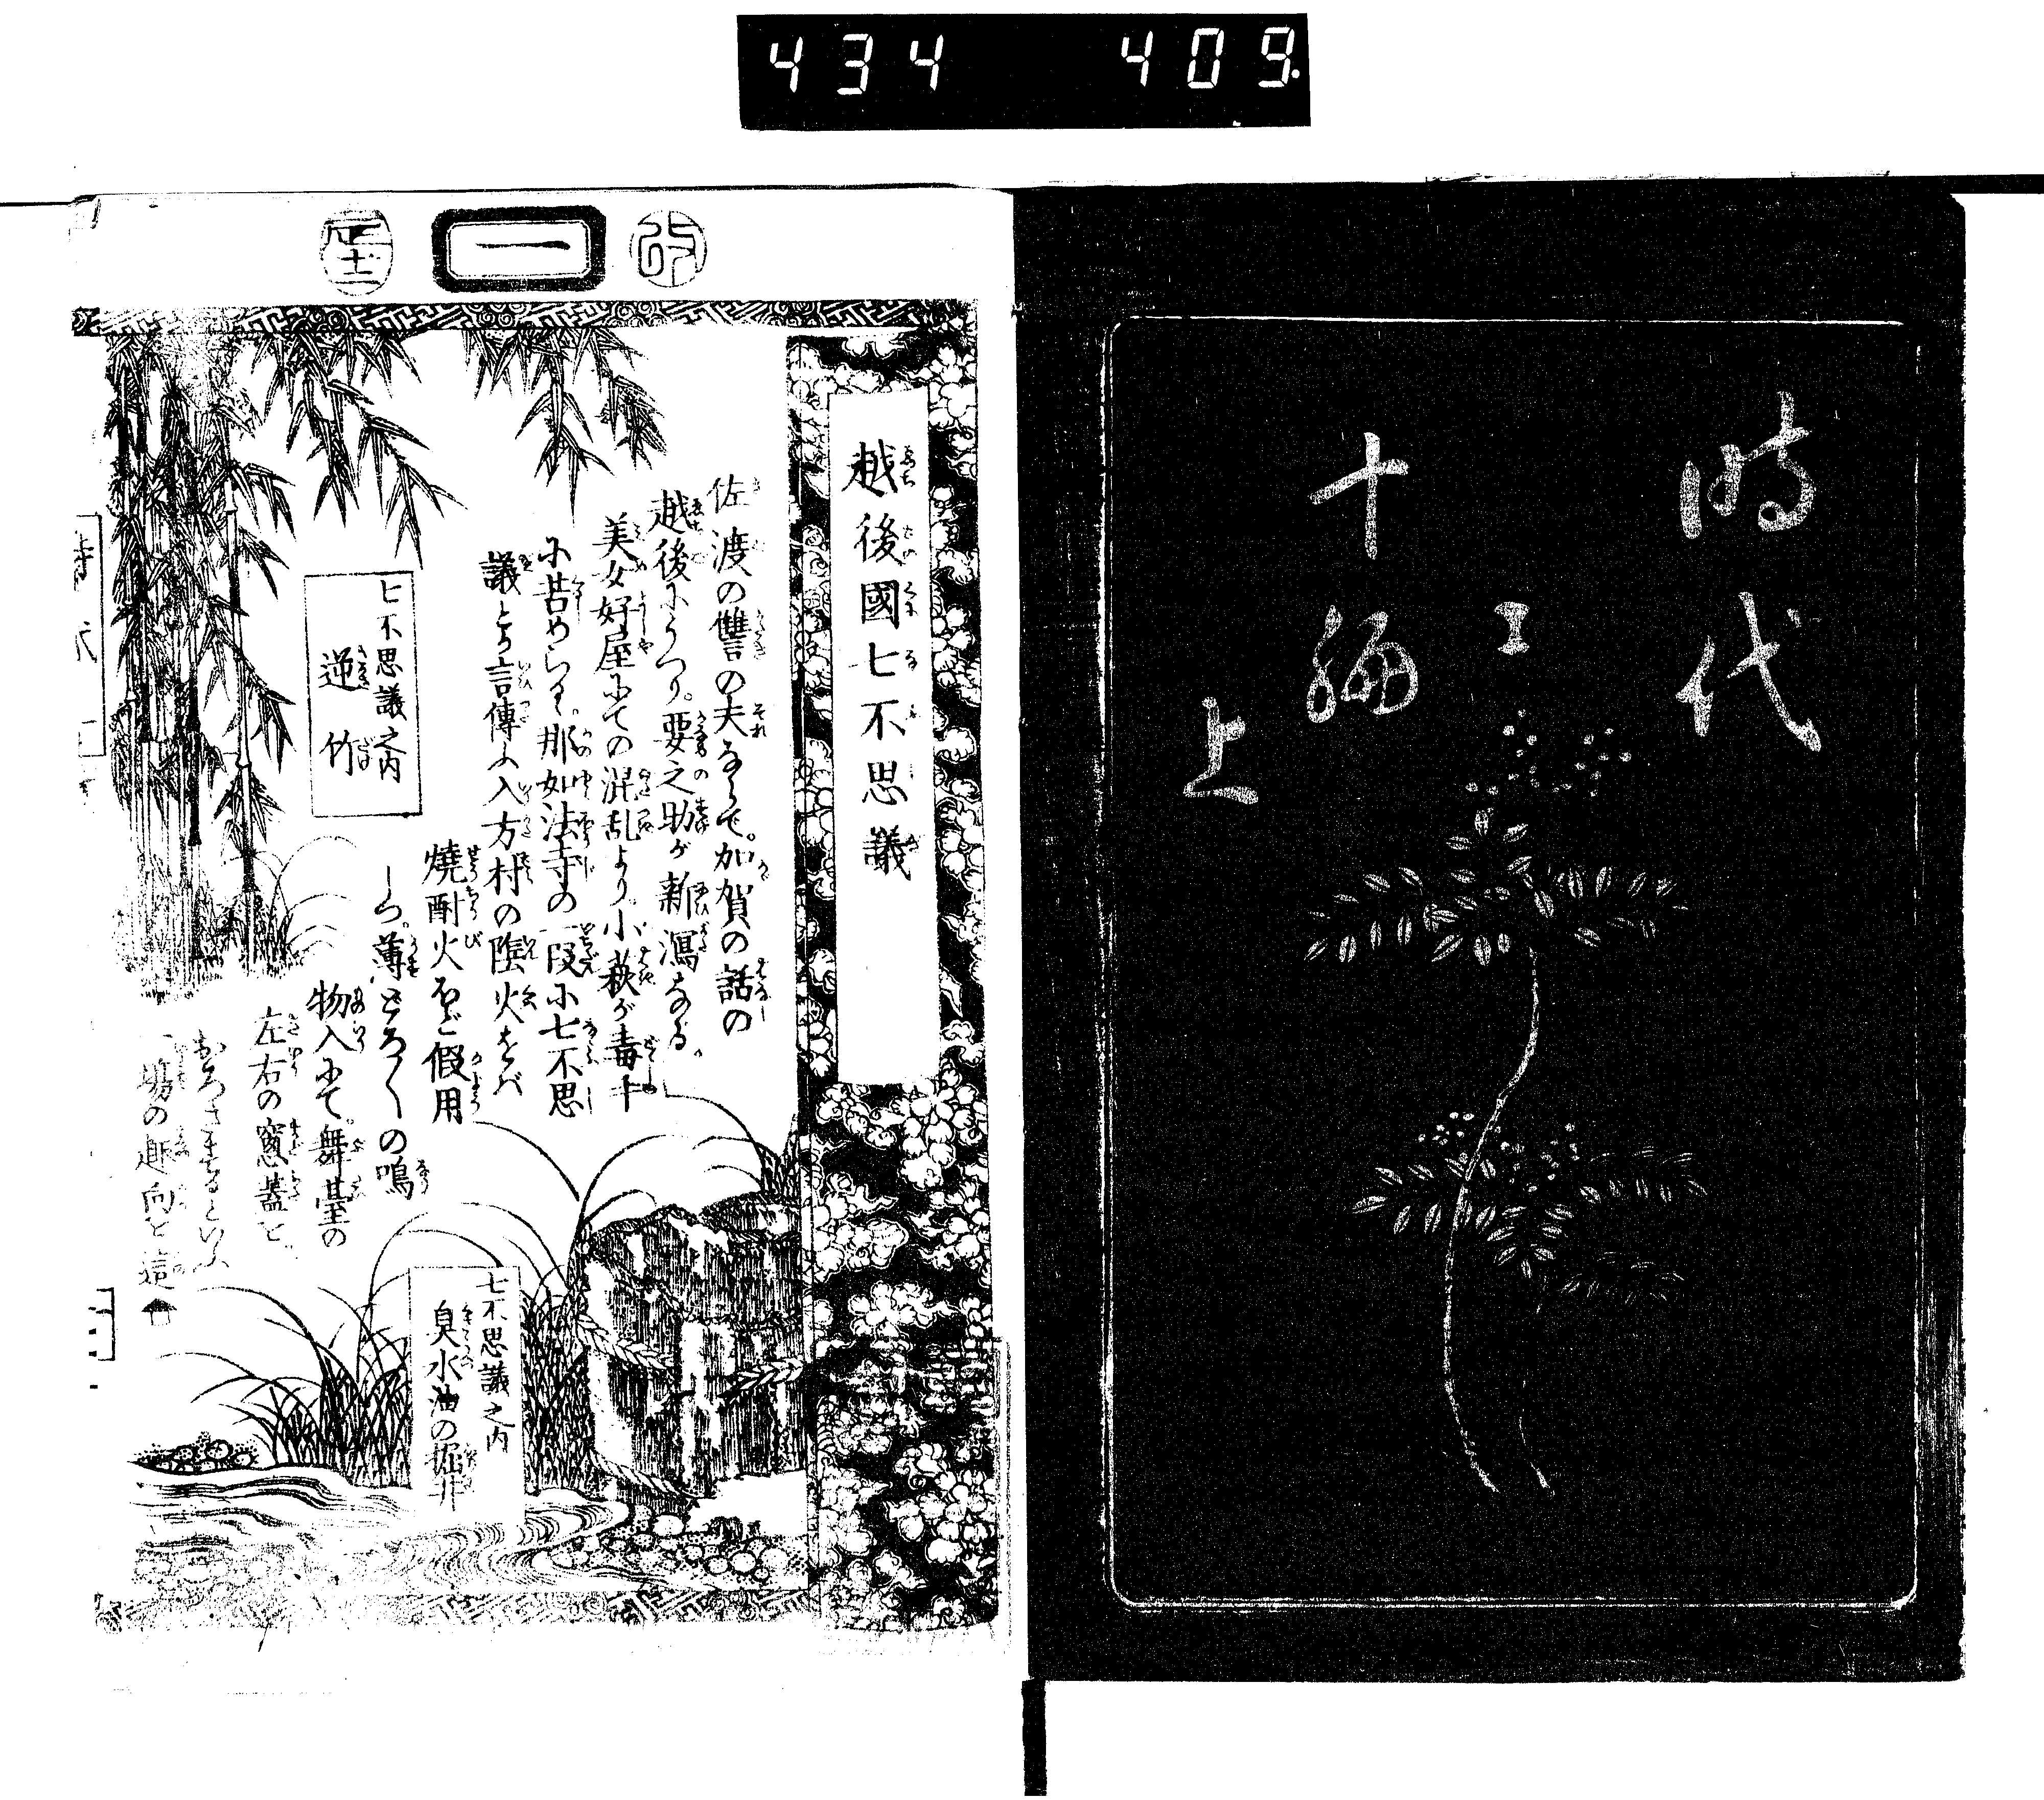 434 409
時代
工
十編
上
改
一
越後國七不思議
佐渡の讐の夫ならで。加賀の話の
越後にうつり。要之助が新瀉なる。
美女好屋にての混乱より。小萩が毒牛
に苦めらるゝ。那如法寺の一段に七不思
議とう言傳ふ入方村の陰火をバ
燒酎火ほど假用
しつ。薄どろ〳〵の鳴
物入にて。舞臺の
左右の窓蓋を。
おろさするといふ
一場の趣向を這
七不思議之内
逆竹
七不思議之内
臭水油の掘井